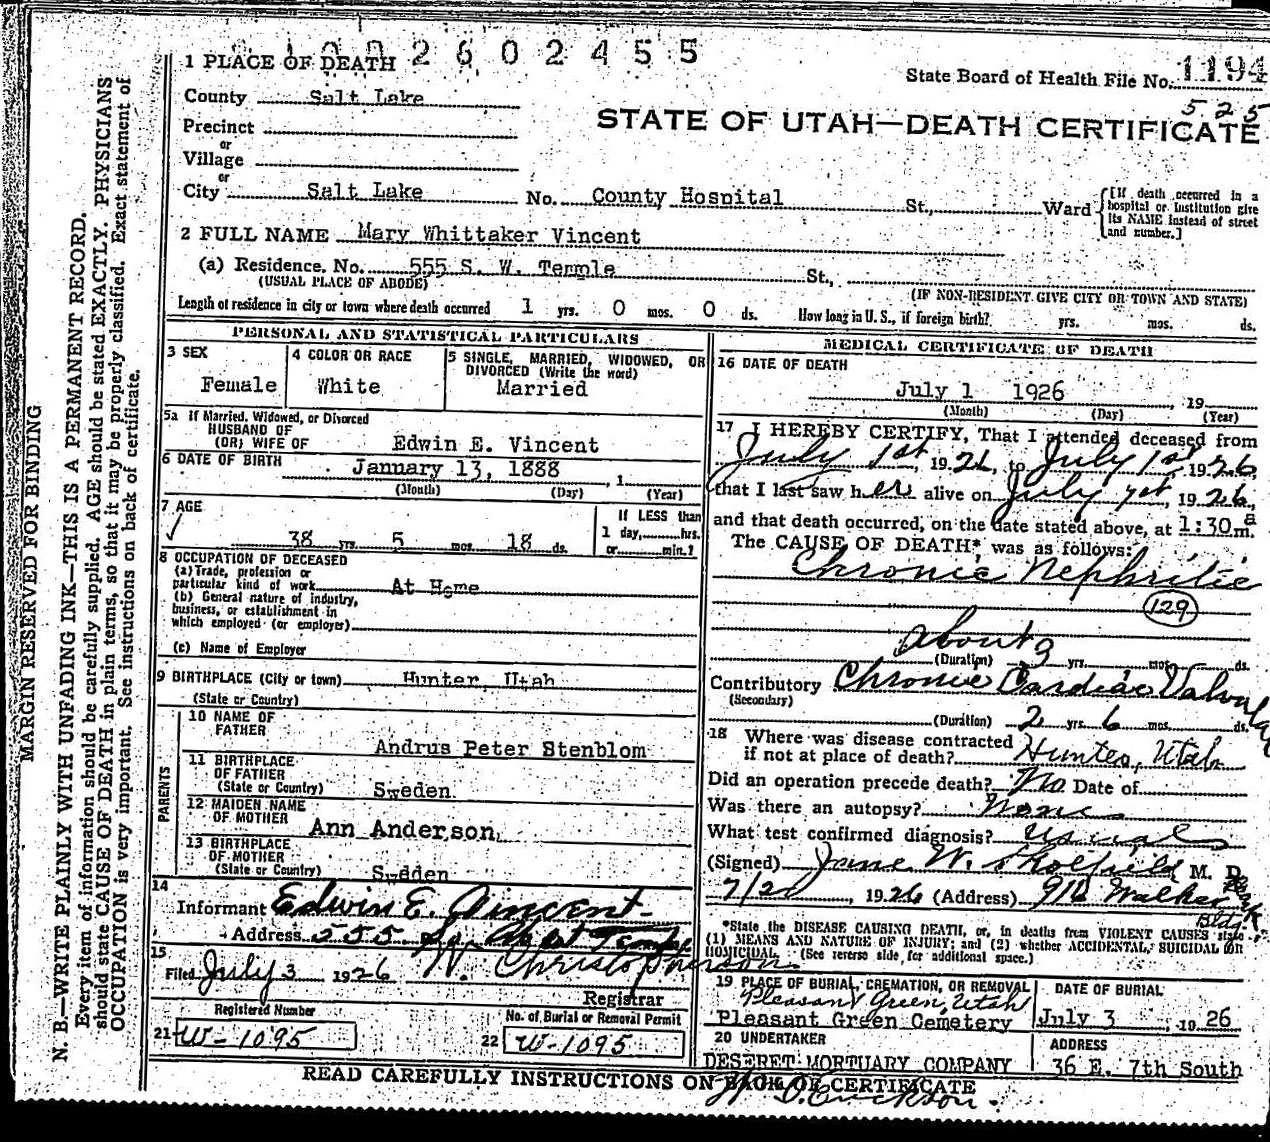 1002602455
1 PLACE OF DEATH
State Board of Health File No. 1194
525
County Salt Lake
STATE OF UTAH—DEATH CERTIFICATE
Precinct
or
Village
or
City Salt Lake No. County Hospital St., Ward
[If death occurred in a hospital or institution give its NAME instead of street and number.]
2 FULL NAME Mary Whittaker Vincent
(a) Residence, No. 555 S. W. Temple St.,
(USUAL PLACE OF ABODE) (IF NON-RESIDENT GIVE CITY OR TOWN AND STATE)
Length of residence in city or town where death occurred 1 yrs. 0 mos. 0 ds. How long in U. S., if foreign birth? yrs. mos. ds.
PERSONAL AND STATISTICAL PARTICULARS
3 SEX
Female
4 COLOR OR RACE
White
5 SINGLE, MARRIED, WIDOWED, OR
DIVORCED (Write the word)
Married
5a If Married, Widowed, or Divorced
HUSBAND OF
(OR) WIFE OF Edwin E. Vincent
6 DATE OF BIRTH January 13, 1888, 1
(Month) (Day) (Year)
7 AGE
38 yrs. 5 mos. 18 ds.
If LESS than
1 day, hrs.
or min.?
8 OCCUPATION OF DECEASED
(a) Trade, profession or
particular kind of work At Home
(b) General nature of industry,
business, or establishment in
which employed (or employer)
(c) Name of Employer
9 BIRTHPLACE (City or town) Hunter, Utah
(State or Country)
PARENTS
10 NAME OF
FATHER
Andrus Peter Stenblom
11 BIRTHPLACE
OF FATHER
(State or Country) Sweden
12 MAIDEN NAME
OF MOTHER Ann Anderson,
13 BIRTHPLACE
OF MOTHER
(State or Country) Sweden
14
Informant Edwin E. Vincent
Address 555 So. West Temple
15
Filed July 3 1926 W. Christopherson
Registrar
Registered Number
21 W-1095
No. of Burial or Removal Permit
22 W-1095
MEDICAL CERTIFICATE OF DEATH
16 DATE OF DEATH
July 1 1926, 19
(Month) (Day) (Year)
17 I HEREBY CERTIFY, That I attended deceased from
July 1st, 1926, to July 1st 1926,
that I last saw her alive on July 1st, 1926,
and that death occurred, on the date stated above, at 1:30 a m.
The CAUSE OF DEATH* was as follows:
Chronic Nephritis
129
about 3
(Duration) yrs. mos. ds.
Contributory Chronic Cardiac Valvular
(Secondary)
(Duration) 2 yrs 6 mos. ds.
18 Where was disease contracted
if not at place of death? Hunter, Utah
Did an operation precede death? No Date of
Was there an autopsy? None
What test confirmed diagnosis? Usual
(Signed) Jane W. Skolfield M. D.
7/2 1926 (Address) 916 Walker Bank Bldg.
*State the DISEASE CAUSING DEATH, or, in deaths from VIOLENT CAUSES state
(1) MEANS AND NATURE OF INJURY; and (2) whether ACCIDENTAL, SUICIDAL or
HOMICIDAL. (See reverse side for additional space.)
19 PLACE OF BURIAL, CREMATION, OR REMOVAL
Pleasant Green, Utah
Pleasant Green Cemetery
DATE OF BURIAL
July 3, 1926
20 UNDERTAKER
DESERET MORTUARY COMPANY
ADDRESS
36 E. 7th South
READ CAREFULLY INSTRUCTIONS ON BACK OF CERTIFICATE
MARGIN RESERVED FOR BINDING
N. B.—WRITE PLAINLY WITH UNFADING INK—THIS IS A PERMANENT RECORD.
Every item of information should be carefully supplied. AGE should be stated EXACTLY. PHYSICIANS
should state CAUSE OF DEATH in plain terms, so that it may be properly classified. Exact statement of
OCCUPATION is very important. See instructions on back of certificate.